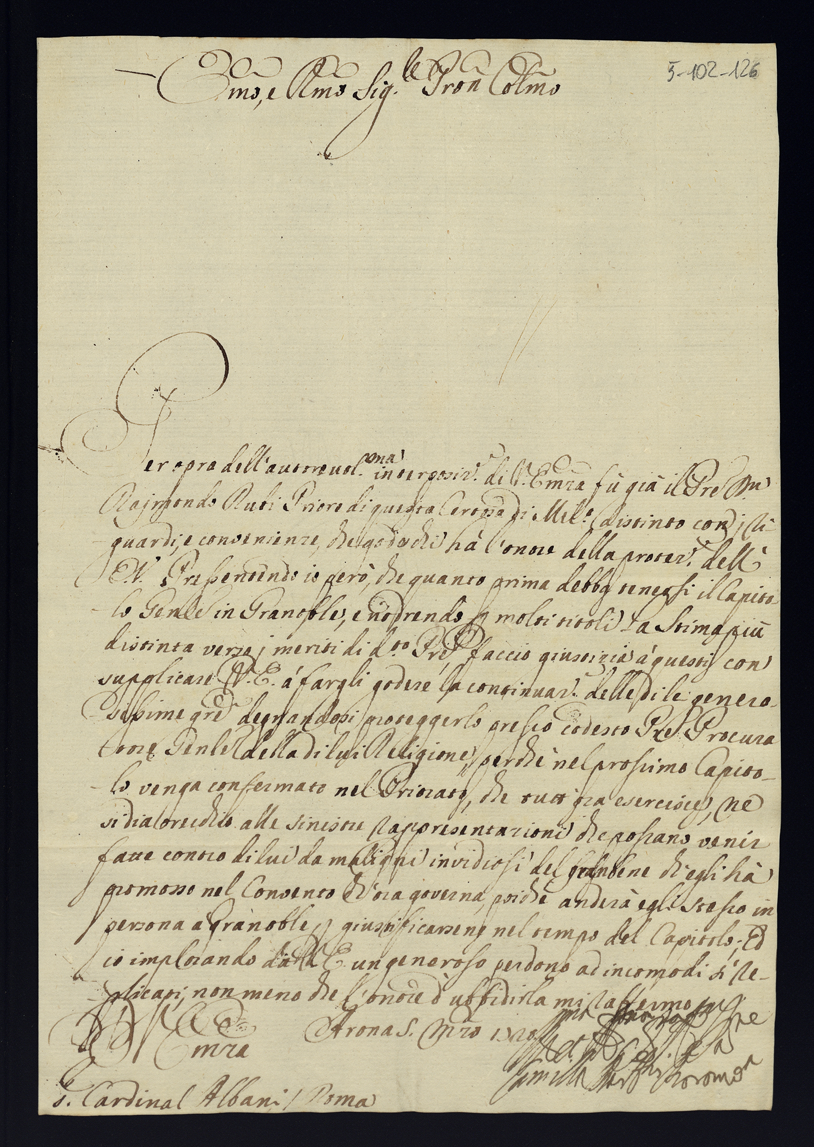 5-102-126
Emo, e Rmo Sig.re Pron Colmo
Per opra dell'autorevol.ma interposiz.e di V. Emza fù già il Pre Dn
Raimondo Rubi Priore di questa Certosa di Mil.o distinto con i ri
guardi, e convenienze, che gode chi hà l'onore della protez.e dell'
E.V. Presentendo io però, che quanto prima debba tenersi il Capito-
lo Genle in Granoble, e nodrendo p molti titoli la Stima più
distinta verso i meriti di d.to Pre, faccio giustizia à questi con
supplicare V.E. à fargli godere la continuaz.e delle di lei genero-
sissime grẽ degnandosi proteggerlo presso codesto Pre Procura
tore Genle della di lui Religione, perche nel prossimo Capito-
lo venga confermato nel Priorato, che tutt'ora esercisce, ne
si dia orecchio alle sinistre rappresentazioni che possano venir
fatte contro di lui da maligni invidiosi del gran bene ch'egli hà
promosso nel Convento ch'ora governa, poiche anderà egli stesso in
persona a Granoble p giustificarsene nel tempo del Capitolo; Ed
io implorando dall'E.V. un generoso perdono ad incomodi sì re-
plicati, non meno che l'onore d'ubbidirla mi raffermo
Di V. Emza
Arona 5. Mzo
S. Cardinal Albani / Roma